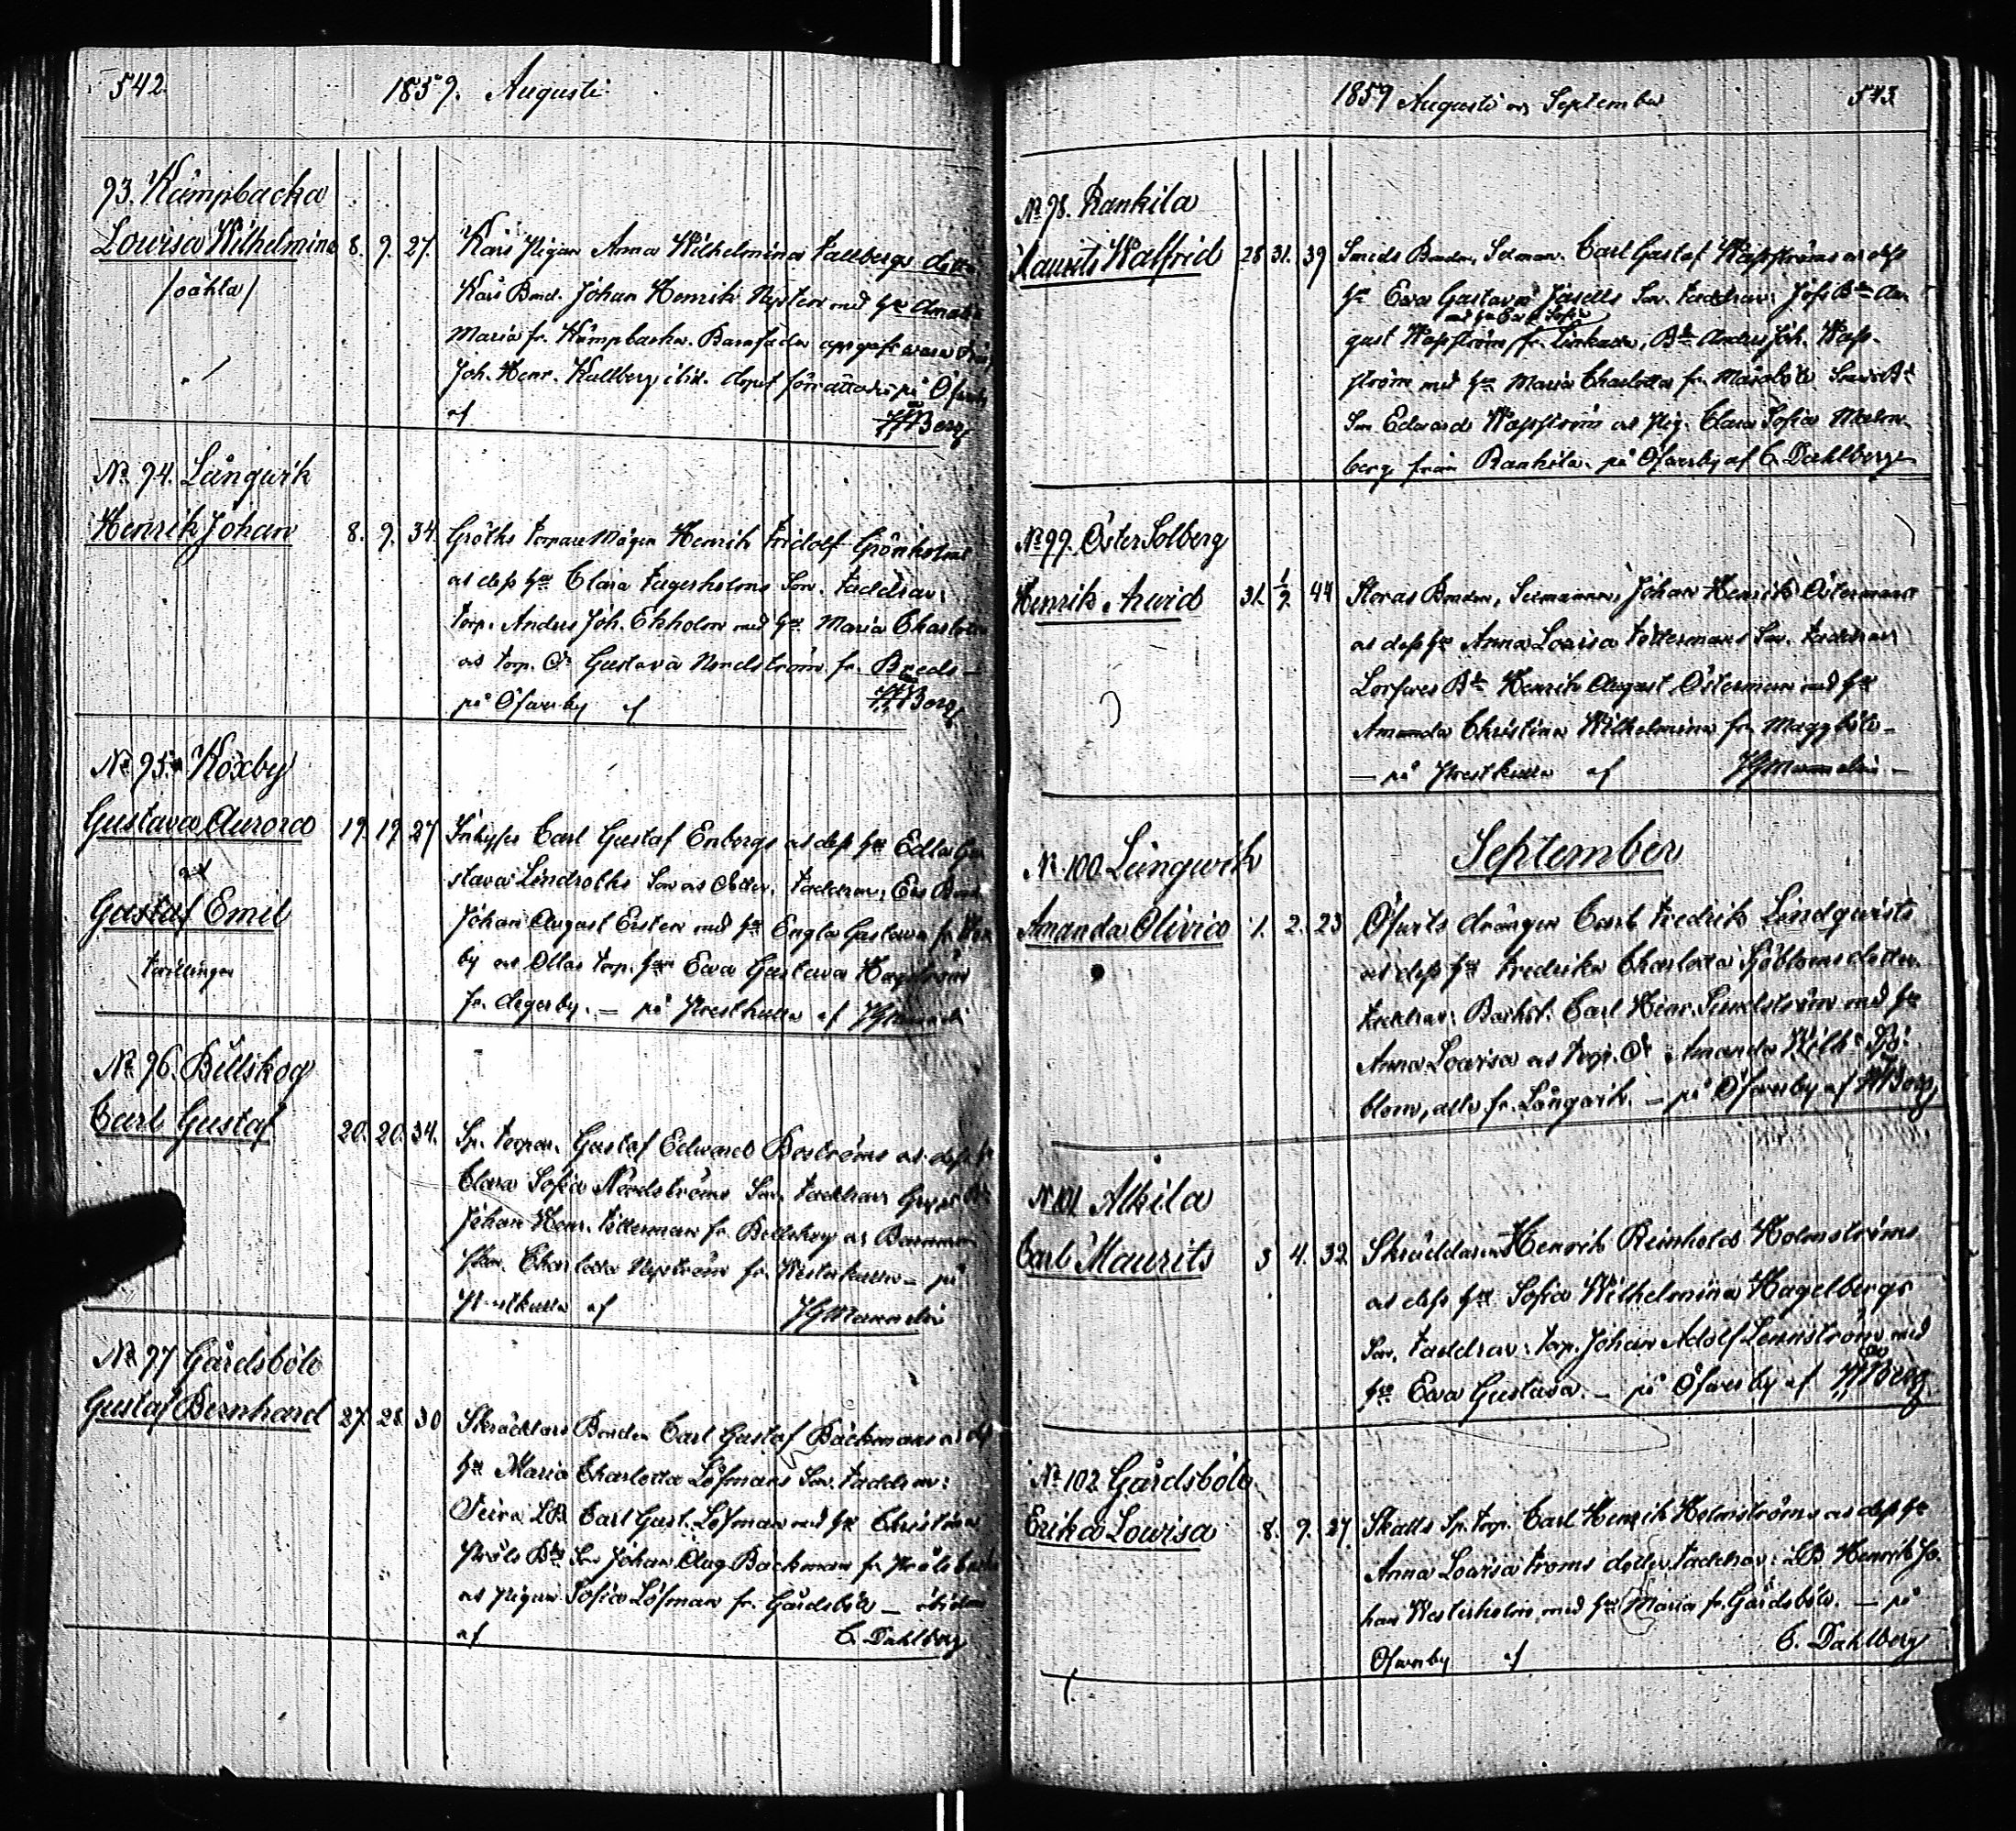 542.
1859. Augusti
93. Kämpbacka
Lovisa Wilhelmina 8. 9. 27. Kais Pigan Anna Wilhelmina Fallbergs dotter
/oäkta/ Kais Bond. Johan Henrik Nysten med hu Amanda
Maria fr. Kämpbacka. Barnfader uppgafs vara
Joh. Henr. Kullberg. dopet förrättades på Öfverby
af Berg
No 94. Långwik
Henrik Johan 8. 9. 34. Gröths Torpare Mågen Henrik Fridolf Grönholms
as dess hu Clara Fagerholms Son. Faddrar:
Torp. Anders Joh. Ekholm med hu Maria Charlotta
as torp. Dr Gustava Nordström fr. Breds –
på Öfverby af Berg
No 95. Köxby
Gustava Aurora 19. 19. 27 Inhyses Carl Gustaf Enbergs as dess hu Edla Gu
as stava Lindroths Son as Dotter. Faddrar: Ers Bond.
Gustaf Emil Johan August Ersten med hu Engla Gustava fr. Köx
Tvillingar by as Ollas torp. hu Eva Gustava Hagström
fr. Degerby. – på Prestkulla af
No 96. Billskog
Carl Gustaf 20. 20. 34. Sp. torpar. Gustaf Edvard Boströms as dess hu
Clara Sofia Nordströms Son. Faddrar
Johan Henr. Fötterman fr. Billskog as
Charlotta Nyström fr. Westerkulla – på
Prestkulla af
No 97 Gårdsböle
Gustaf Bernhard 27. 28. 30 Skräddars Bonden Carl Gustaf Bäckmans as dess
hu Maria Charlotta Löfmans Son. Faddrar:
LB. Carl Gust. Löfman med hu Christina
Son Johan Aug. Bäckman fr.
as pigan Sofia Löfman fr. Gårdsböle –
af C. Dahlberg
1859 Augusti as September
543
No 98. Rankila
Maurits Walfrid 28 31. 39 Smeds Bonden, Sexman. Carl Gustaf Wassströms as dess
hu Eva Gustava Son. Faddrar: Au
med hu Eva Sofia
gust Wassström fr. Linkulla, Bd Anders Joh. Wass-
ström med hu Maria Charlotta fr.
Son Edvard Wassström as Pig. Clara Sofia Malm
berg från Rankila. på Öfverby af C. Dahlberg
No 99. Öster Solberg
Henrik Arvid 31. 1/9. 44 Storas Bonden, Sexmannen, Johan Henrik Östermans
as dess hu Anna Lovisa Föttermans Son. Faddrar
Bd Henrik August Österman med hu
Amanda Christina Wilhelmina fr. Maggböle –
– på Prestkulla af
September
No 100 Långwik
Amanda Olivia 1. 2. 23 Öfverbs drängen Carl Fredrik Lindqvists
as dess hu Fredrika Charlotta Sjöbloms dotter.
Faddrar: Backst. Carl Henr. Sundström med hu
Anna Lovisa as torp. Dr Amanda Wilh. Sjö
blom, alla fr. Långvik. – på Öfverby af Berg
No 101. Alkila
Carl Maurits 3 4. 32 Skräddaren Henrik Reinhold Holmströms
as dess hu Sofia Wilhelmina Hagelbergs
Son. Faddrar: torp. Johan Adolf Lennström med
hu Eva Gustava. – på Öfverby af Berg
No 102 Gårdsböle
Erika Lovisa 8. 9. 27 Skatts Sp. torp. Carl Henrik Holmströms as dess hu
Anna Lovisa Froms dotter. Faddrar: LB Henrik Jo
han Westerholm med hu Maria fr. Gårdsböle. – på
Öfverby af C. Dahlberg